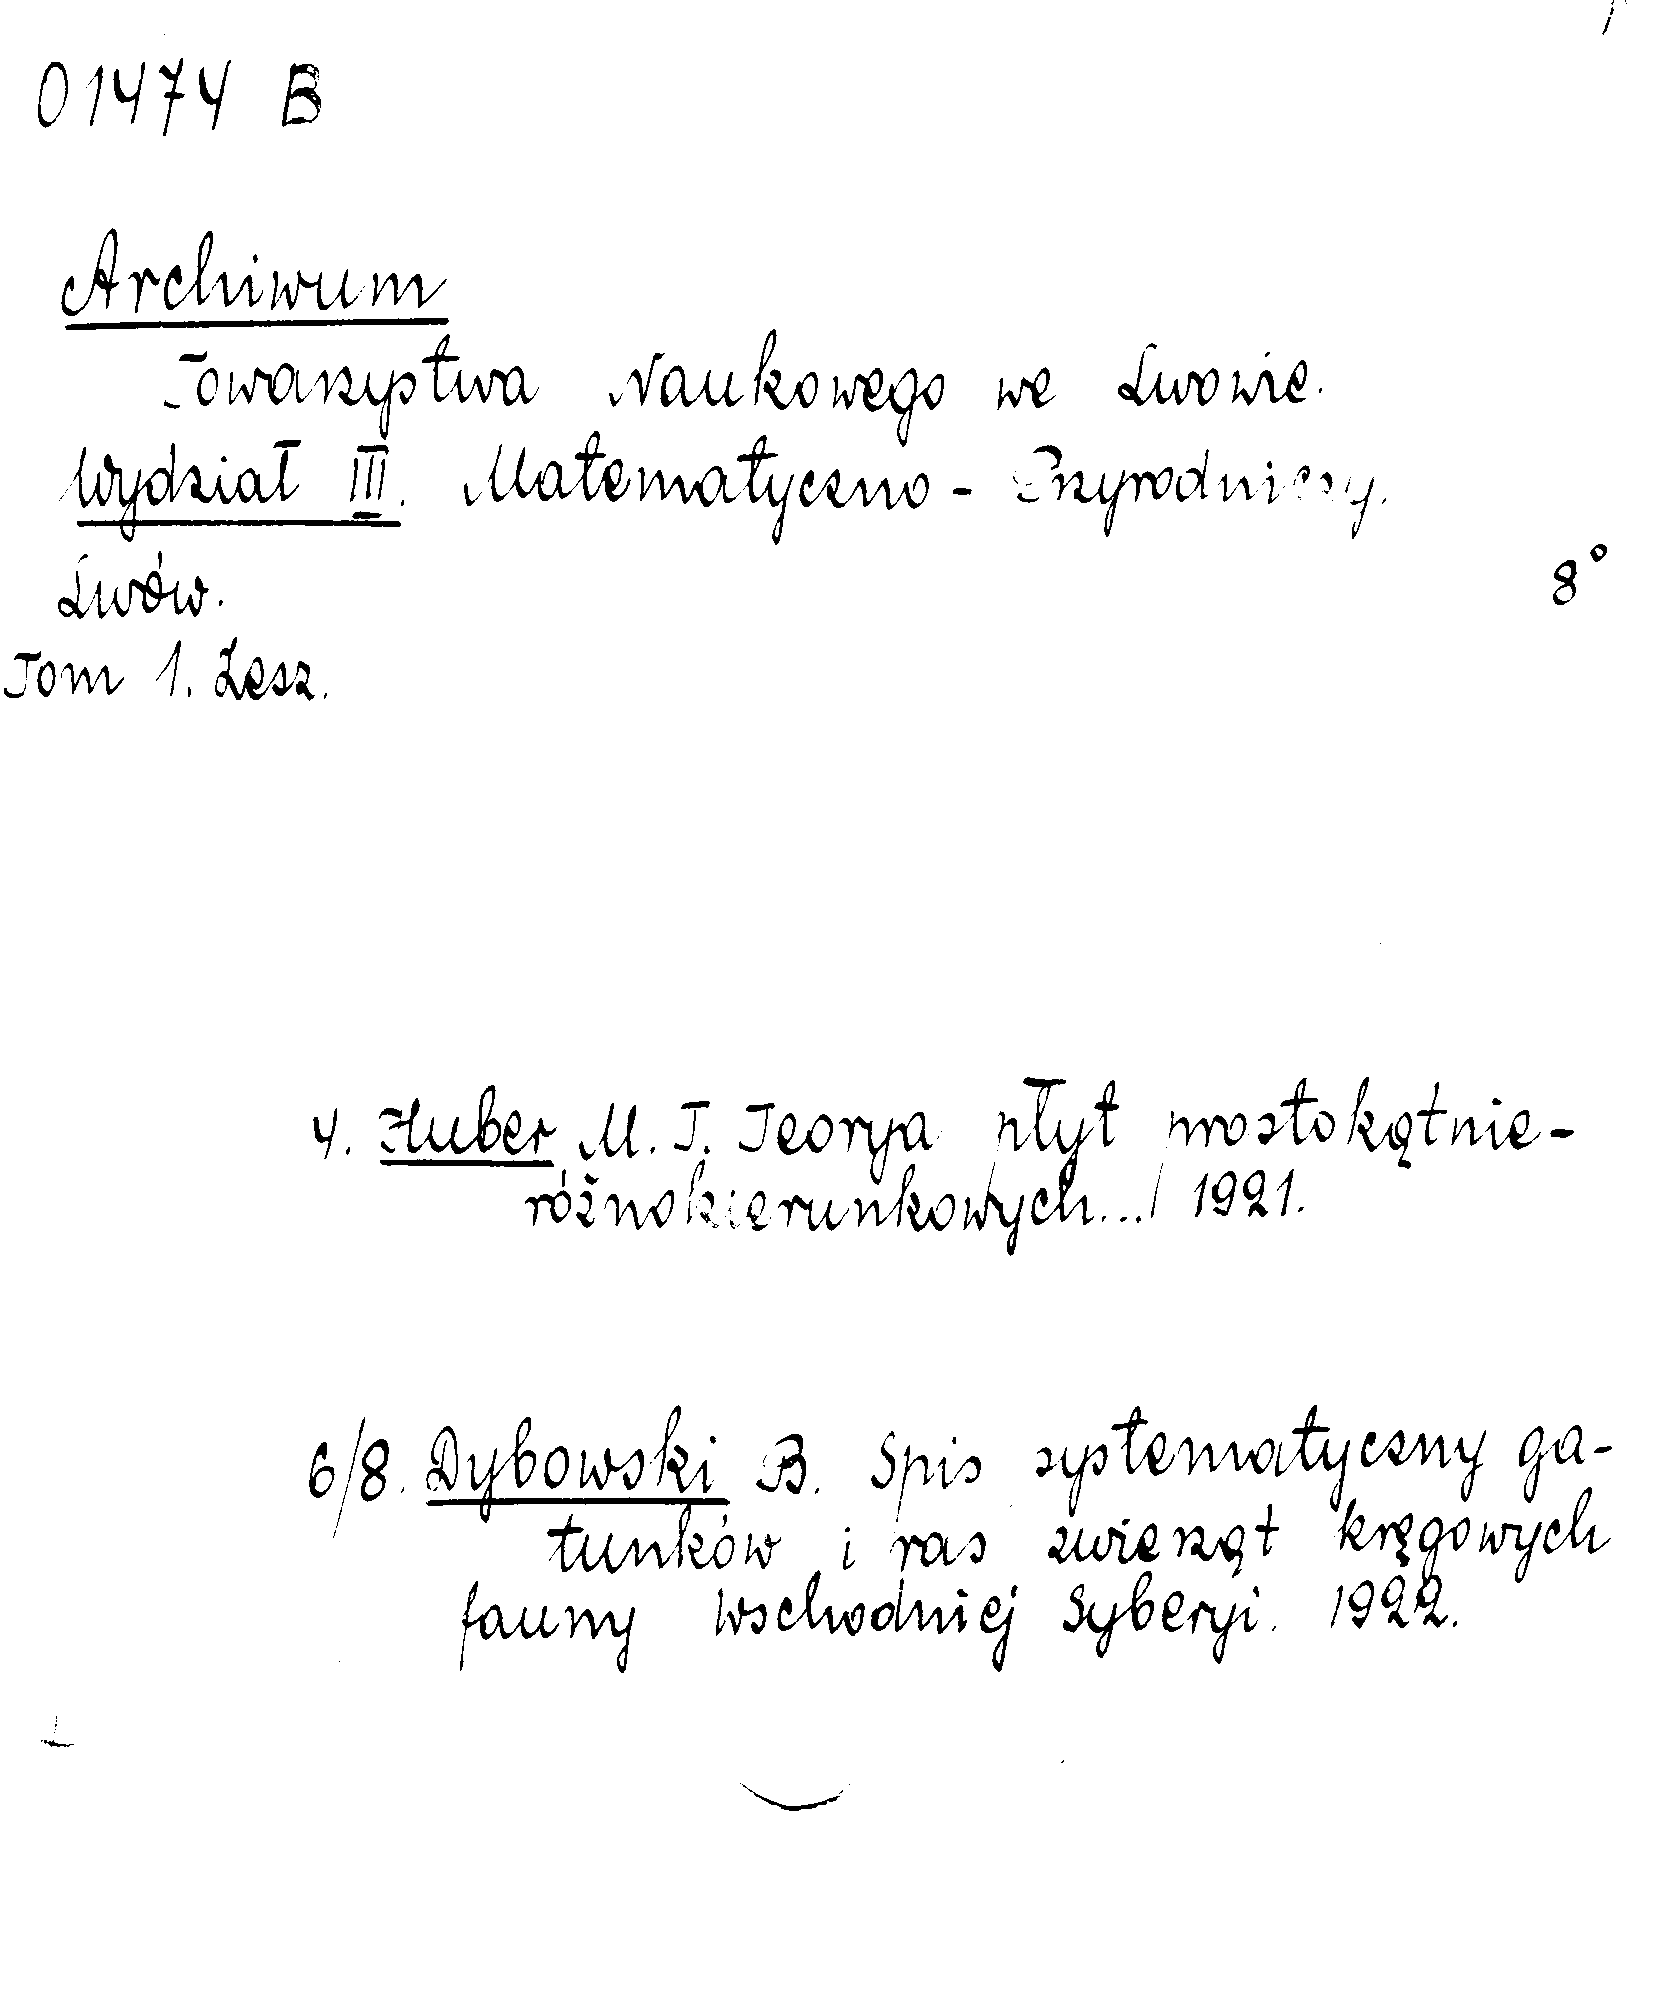 01474 B
Archiwum
Towarzystwa Naukowego we Lwowie.
Wydział III. Matematyczno - Przyrodniczy.
Lwów. 8°
Tom 1. Zesz.
4. Huber M. T. Teorya płyt prostokątnie-
różnokierunkowych... 1921.
6/8. Dybowski B. Spis systematyczny ga-
tunków i ras zwierząt kręgowych
fauny wschodniej Syberyi. 1922.